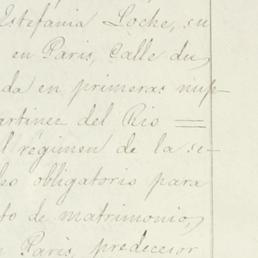 Estefania Loche, su
en Paris, Calle du
da en primeras nup-
artinez del Rio =
l régimen de la se-
les obligatoris para
to de matrimonio,
n Paris, predecesor